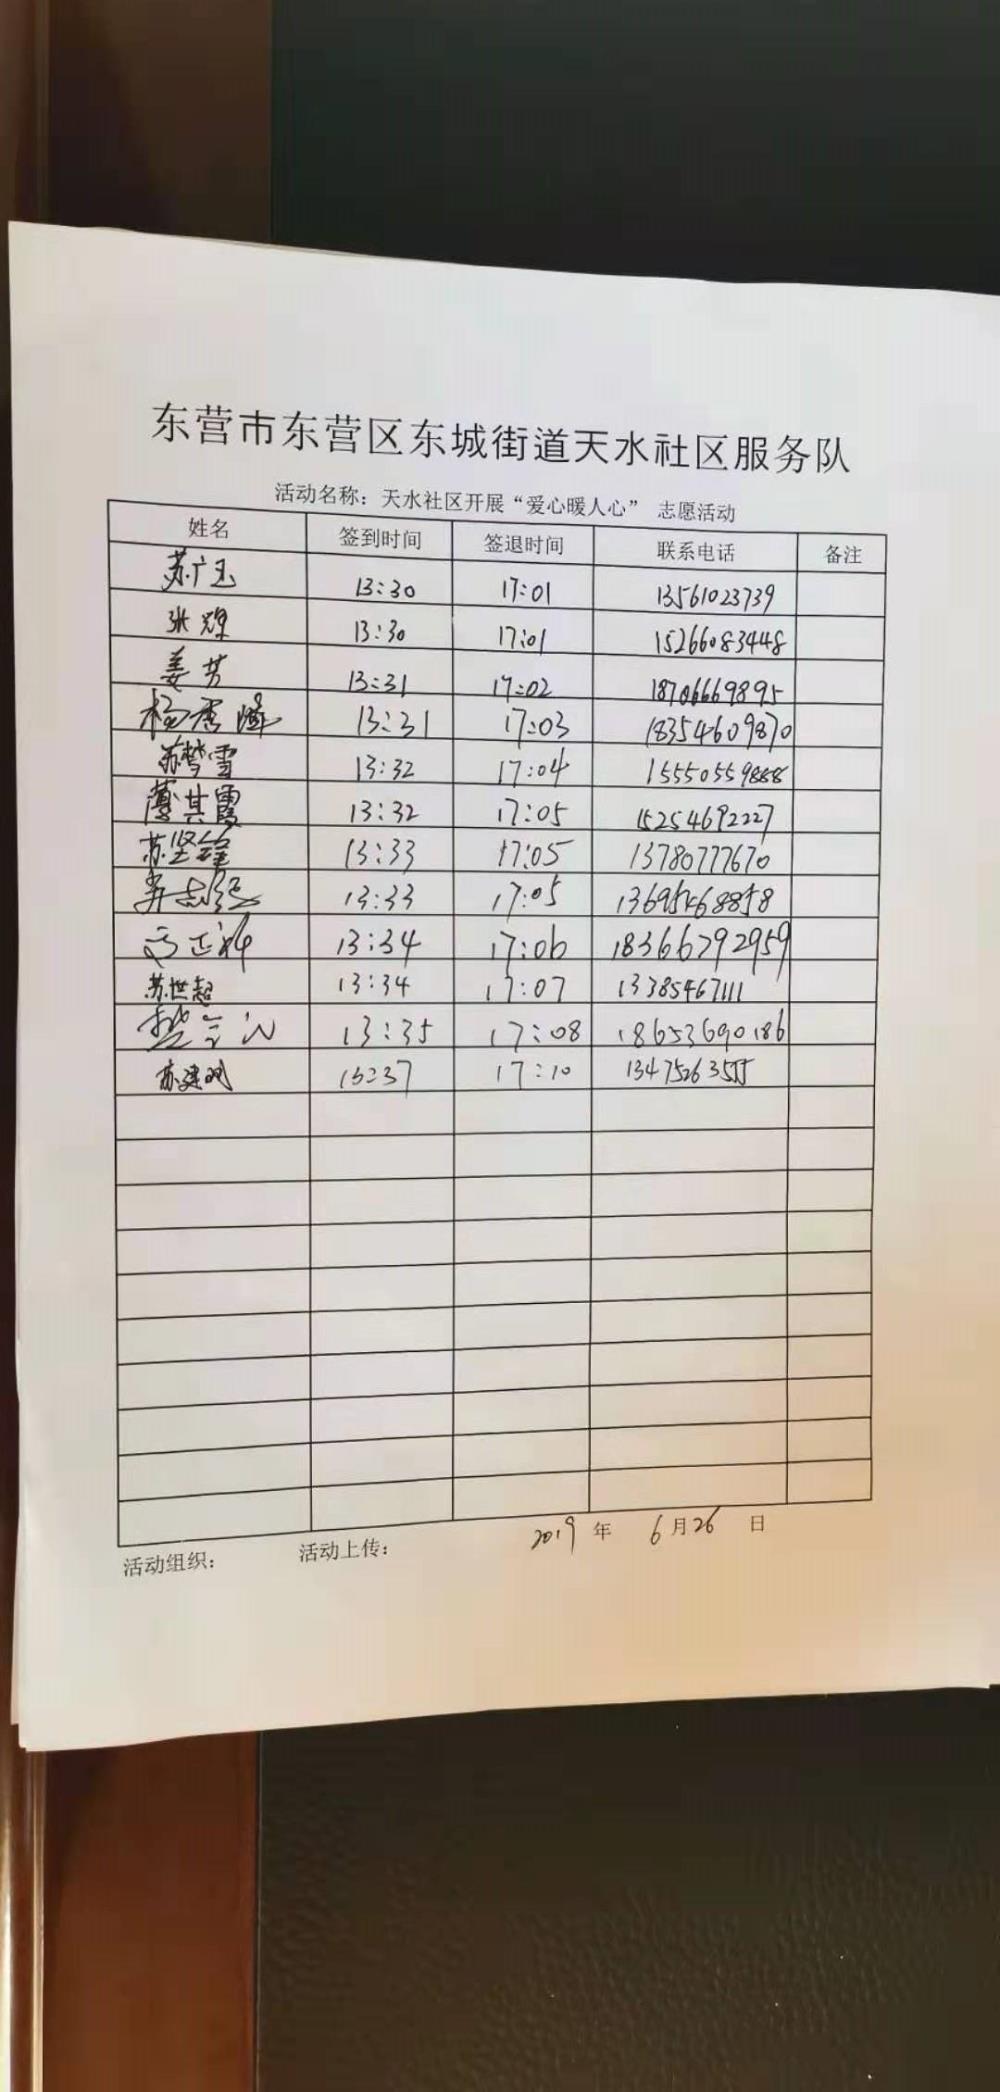 东营市东营区东城街道天水社区服务队
活动名称：天水社区开展“爱心暖人心” 志愿活动
姓名 签到时间 签退时间 联系电话 备注
苏广玉 13:30 17:01 13561023739
张辉 13:30 17:01 15266083448
姜芳 13:31 17:02 18706669895
杨秀峰 13:31 17:03 18354609870
苏梦雪 13:32 17:04 15550559888
薄其霞 13:32 17:05 15254692227
苏坚锋 13:33 17:05 13780777670
13:33 17:05 13695468858
13:34 17:06 18366792959
苏世超 13:34 17:07 13385467111
13:35 17:08 18653690186
苏建 13:37 17:10
2019 年 6 月 26 日
活动组织： 活动上传：